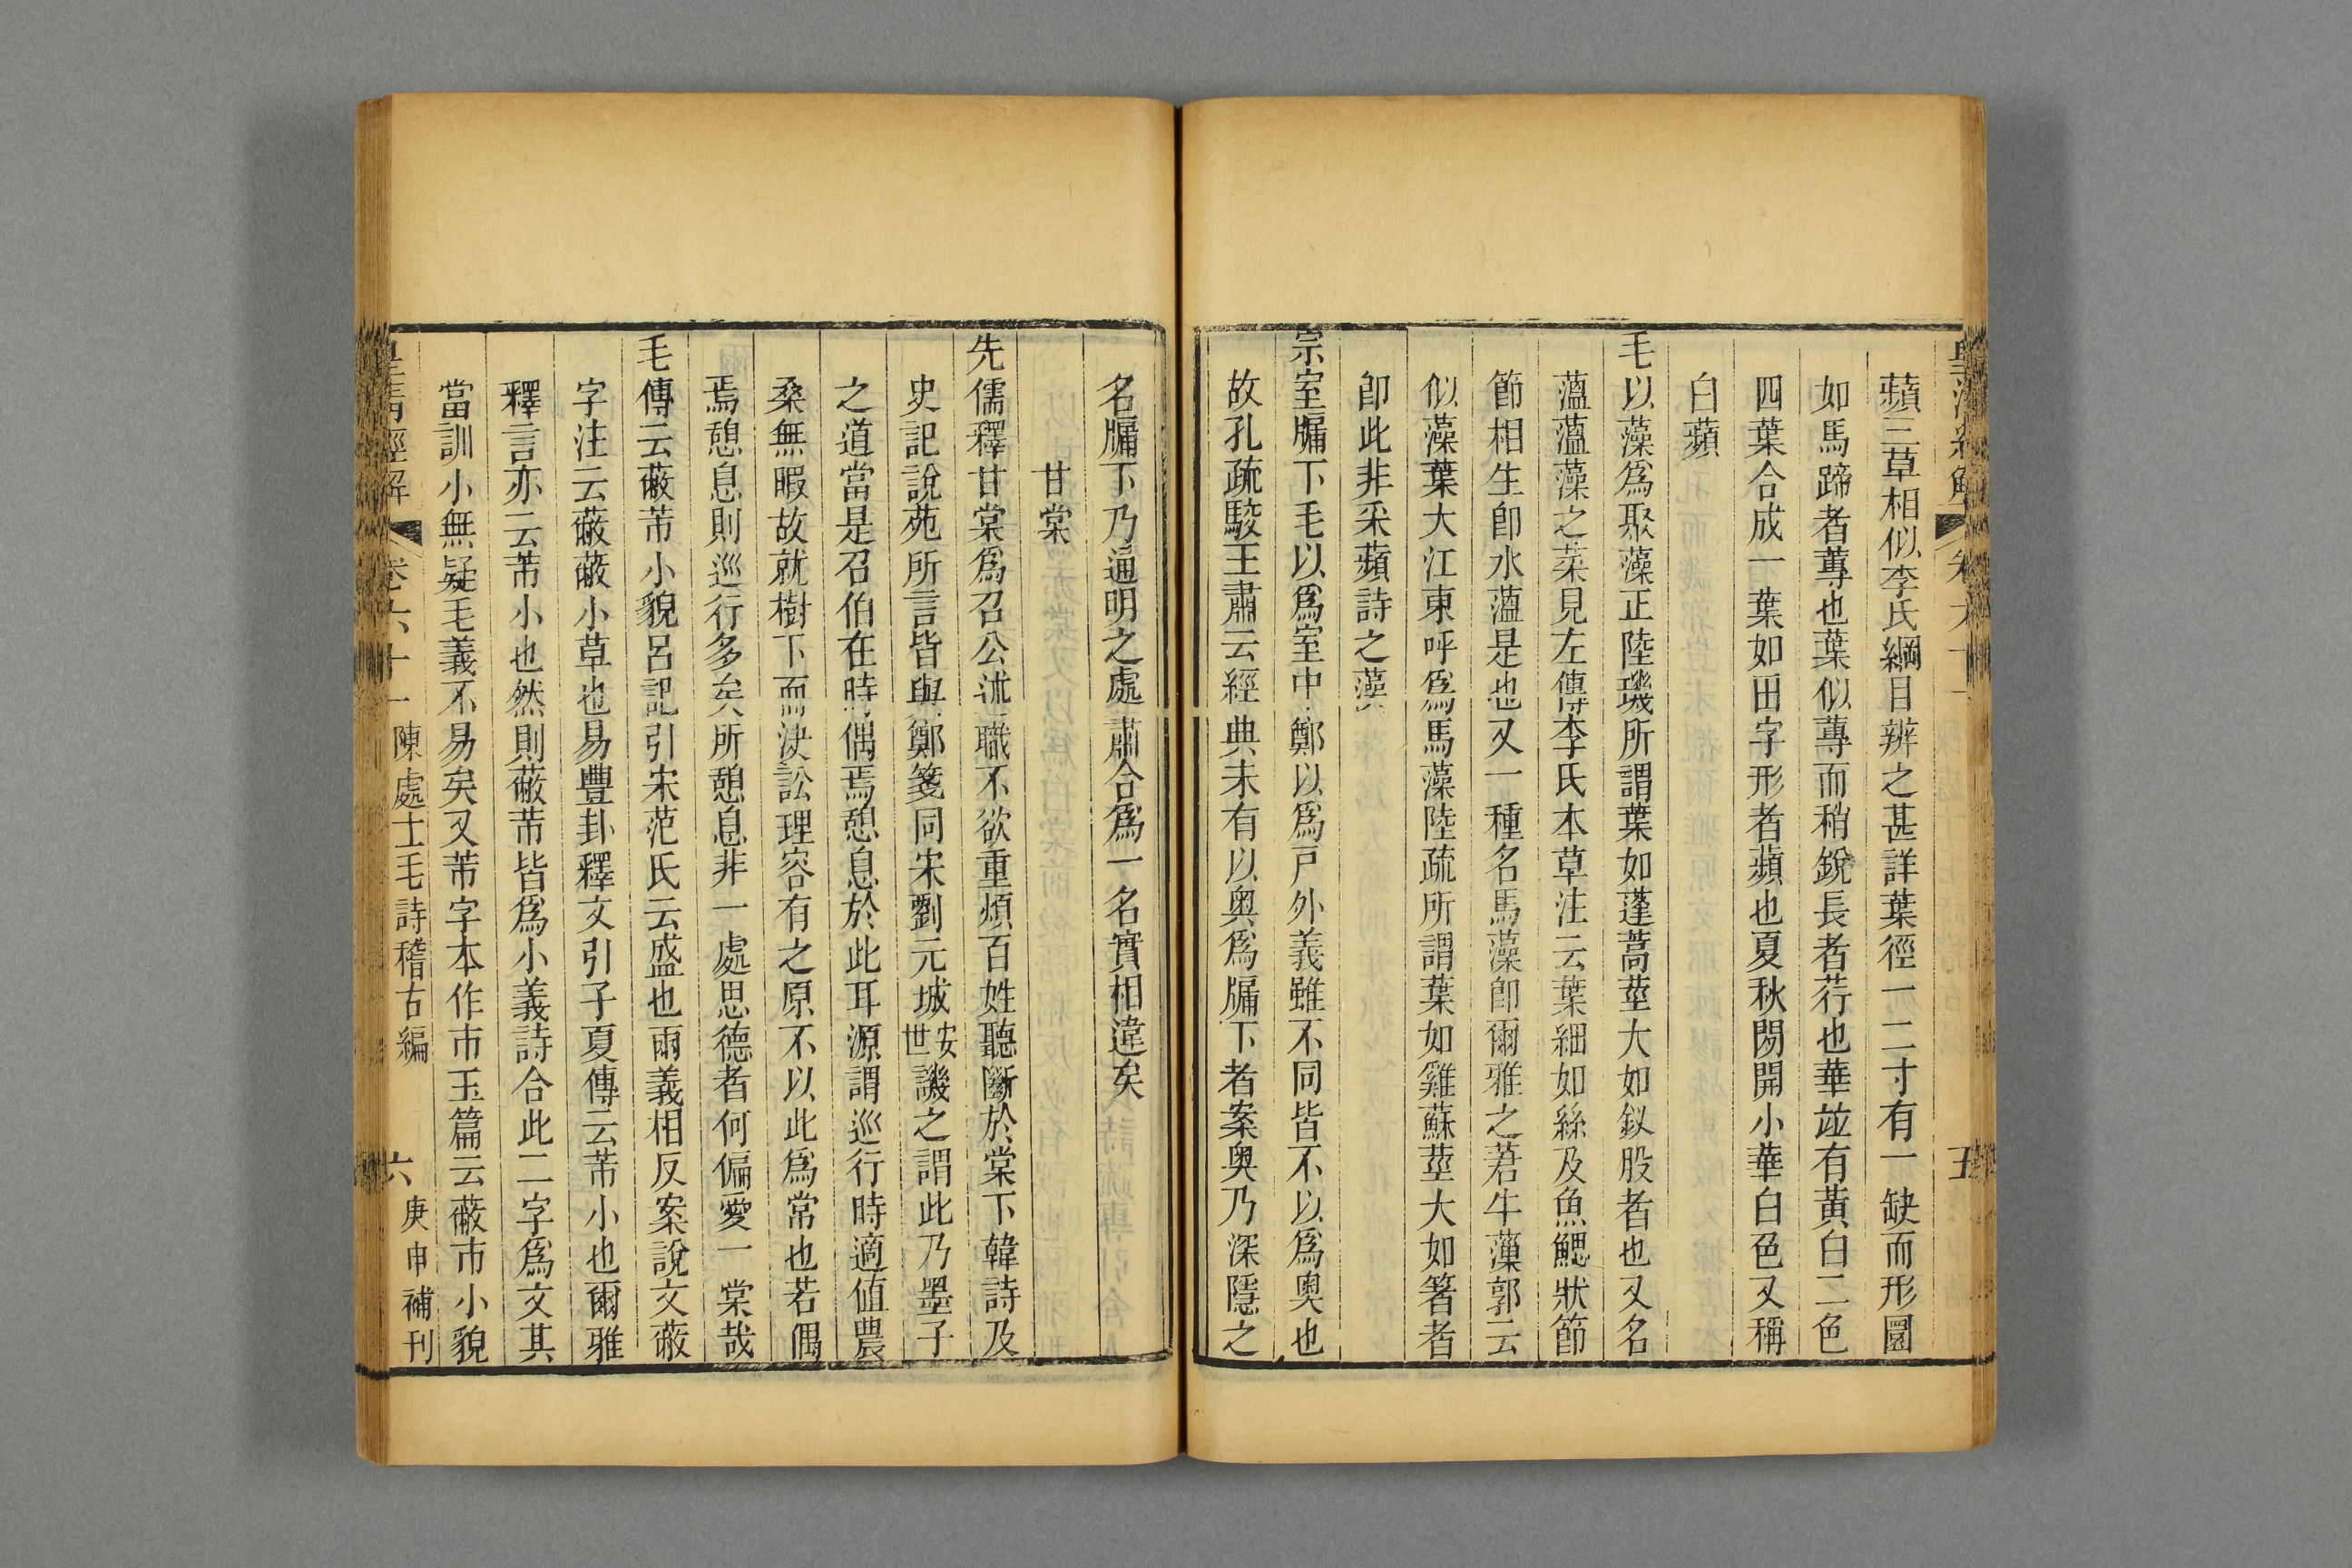 皇清經解 卷六十一 五
蘋三草相似李氏綱目辨之甚詳葉徑一二寸有一缺而形圓
如馬蹄者蓴也葉似蓴而稍銳長者荇也華竝有黃白二色
四葉合成一葉如田字形者蘋也夏秋閒開小華白色又稱
白蘋
毛以藻爲聚藻正陸璣所謂葉如蓬蒿莖大如釵股者也又名
薀薀藻之菜見左傳李氏本草注云葉細如絲及魚鰓狀節
節相生卽水薀是也又一種名馬藻卽爾雅之莙牛藻郭云
似藻葉大江東呼爲馬藻陸疏所謂葉如雞蘇莖大如箸者
卽此非采蘋詩之藻
宗室牖下毛以爲室中鄭以爲戸外義雖不同皆不以爲奧也
故孔疏駮王肅云經典未有以奧爲牖下者案奧乃深隱之
名牖下乃通明之處肅合爲一名實相違矣
甘棠
先儒釋甘棠爲召公述職不欲重煩百姓聽斷於棠下韓詩及
史記說苑所言皆與鄭箋同宋劉元城安世譏之謂此乃墨子
之道當是召伯在時偶焉憩息於此耳源謂巡行時適値農
桑無暇故就樹下而決訟理容有之原不以此爲常也若偶
焉憩息則巡行多矣所憩息非一處思德者何偏愛一棠哉
毛傳云蔽芾小貌呂記引宋范氏云盛也兩義相反案說文蔽
字注云蔽蔽小草也易豐卦釋文引子夏傳云芾小也爾雅
釋言亦云芾小也然則蔽芾皆爲小義詩合此二字爲文其
當訓小無疑毛義不易矣又芾字本作巿玉篇云蔽巿小貌
皇清經解 卷六十一 陳處士毛詩稽古編 六 庚申補刊